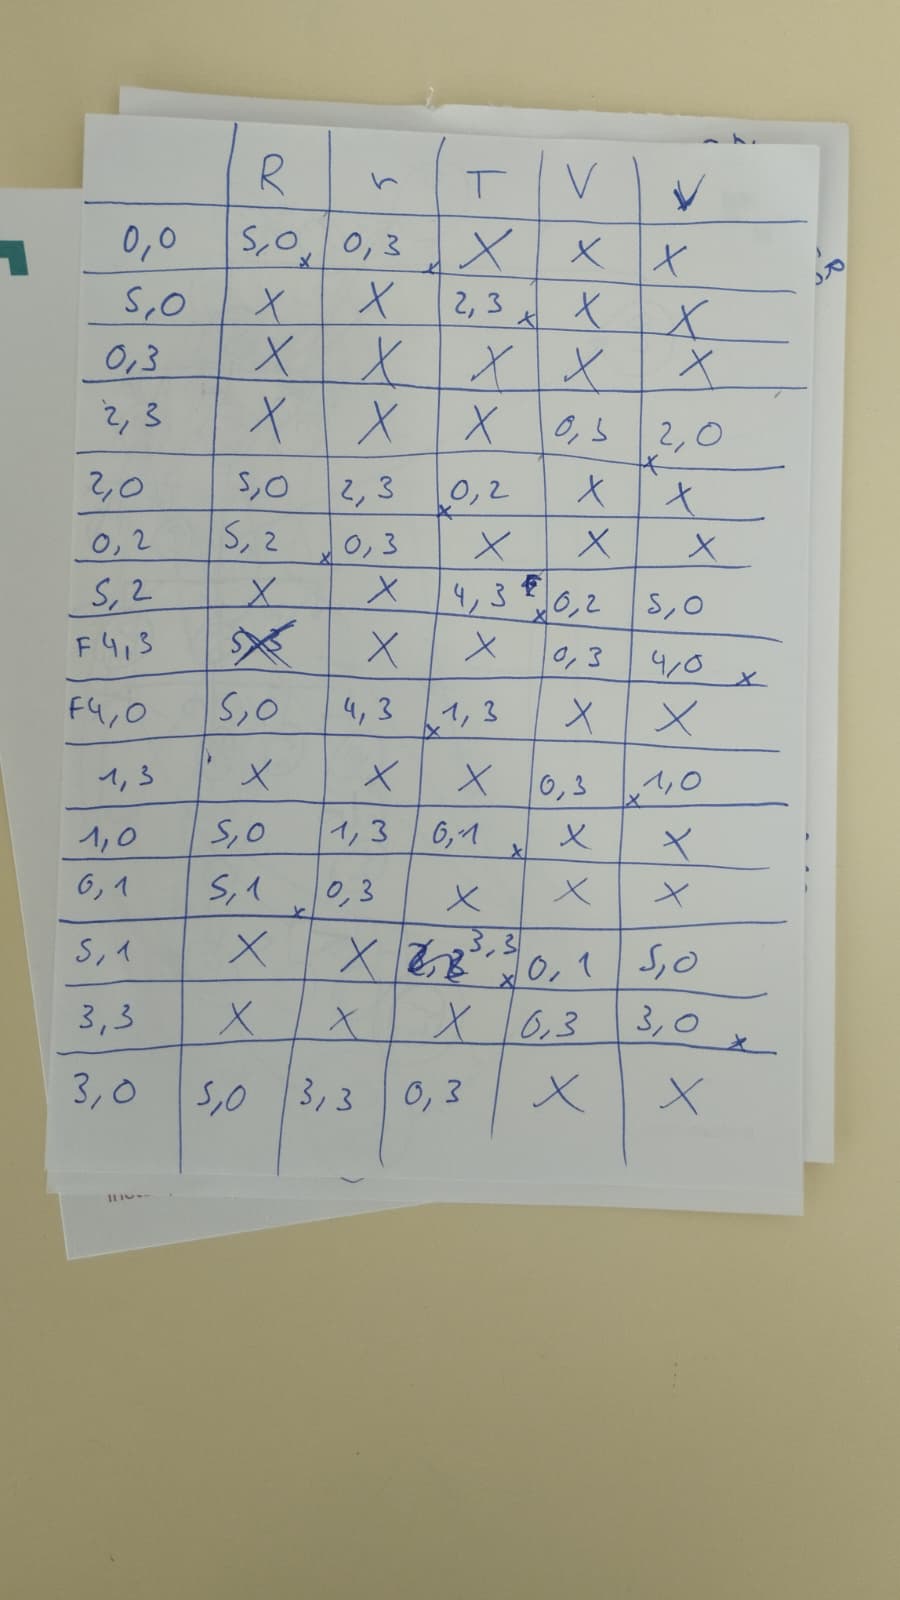 R r T V v
0,0 5,0 x 0,3 x X X X
5,0 X X 2,3 x X X
0,3 X X X X X
2,3 X X X 0,3 2,0 x
2,0 5,0 2,3 0,2 x X X
0,2 5,2 x 0,3 X X X
5,2 X X 4,3 F x 0,2 5,0
F 4,3 X X 0,3 4,0 x
F4,0 5,0 4,3 1,3 x X X
1,3 X X X 0,3 1,0 x
1,0 5,0 1,3 0,1 x X X
0,1 5,1 x 0,3 X X X
5,1 X X 3,3 x 0,1 5,0
3,3 X X X 0,3 3,0 x
3,0 5,0 3,3 0,3 X X